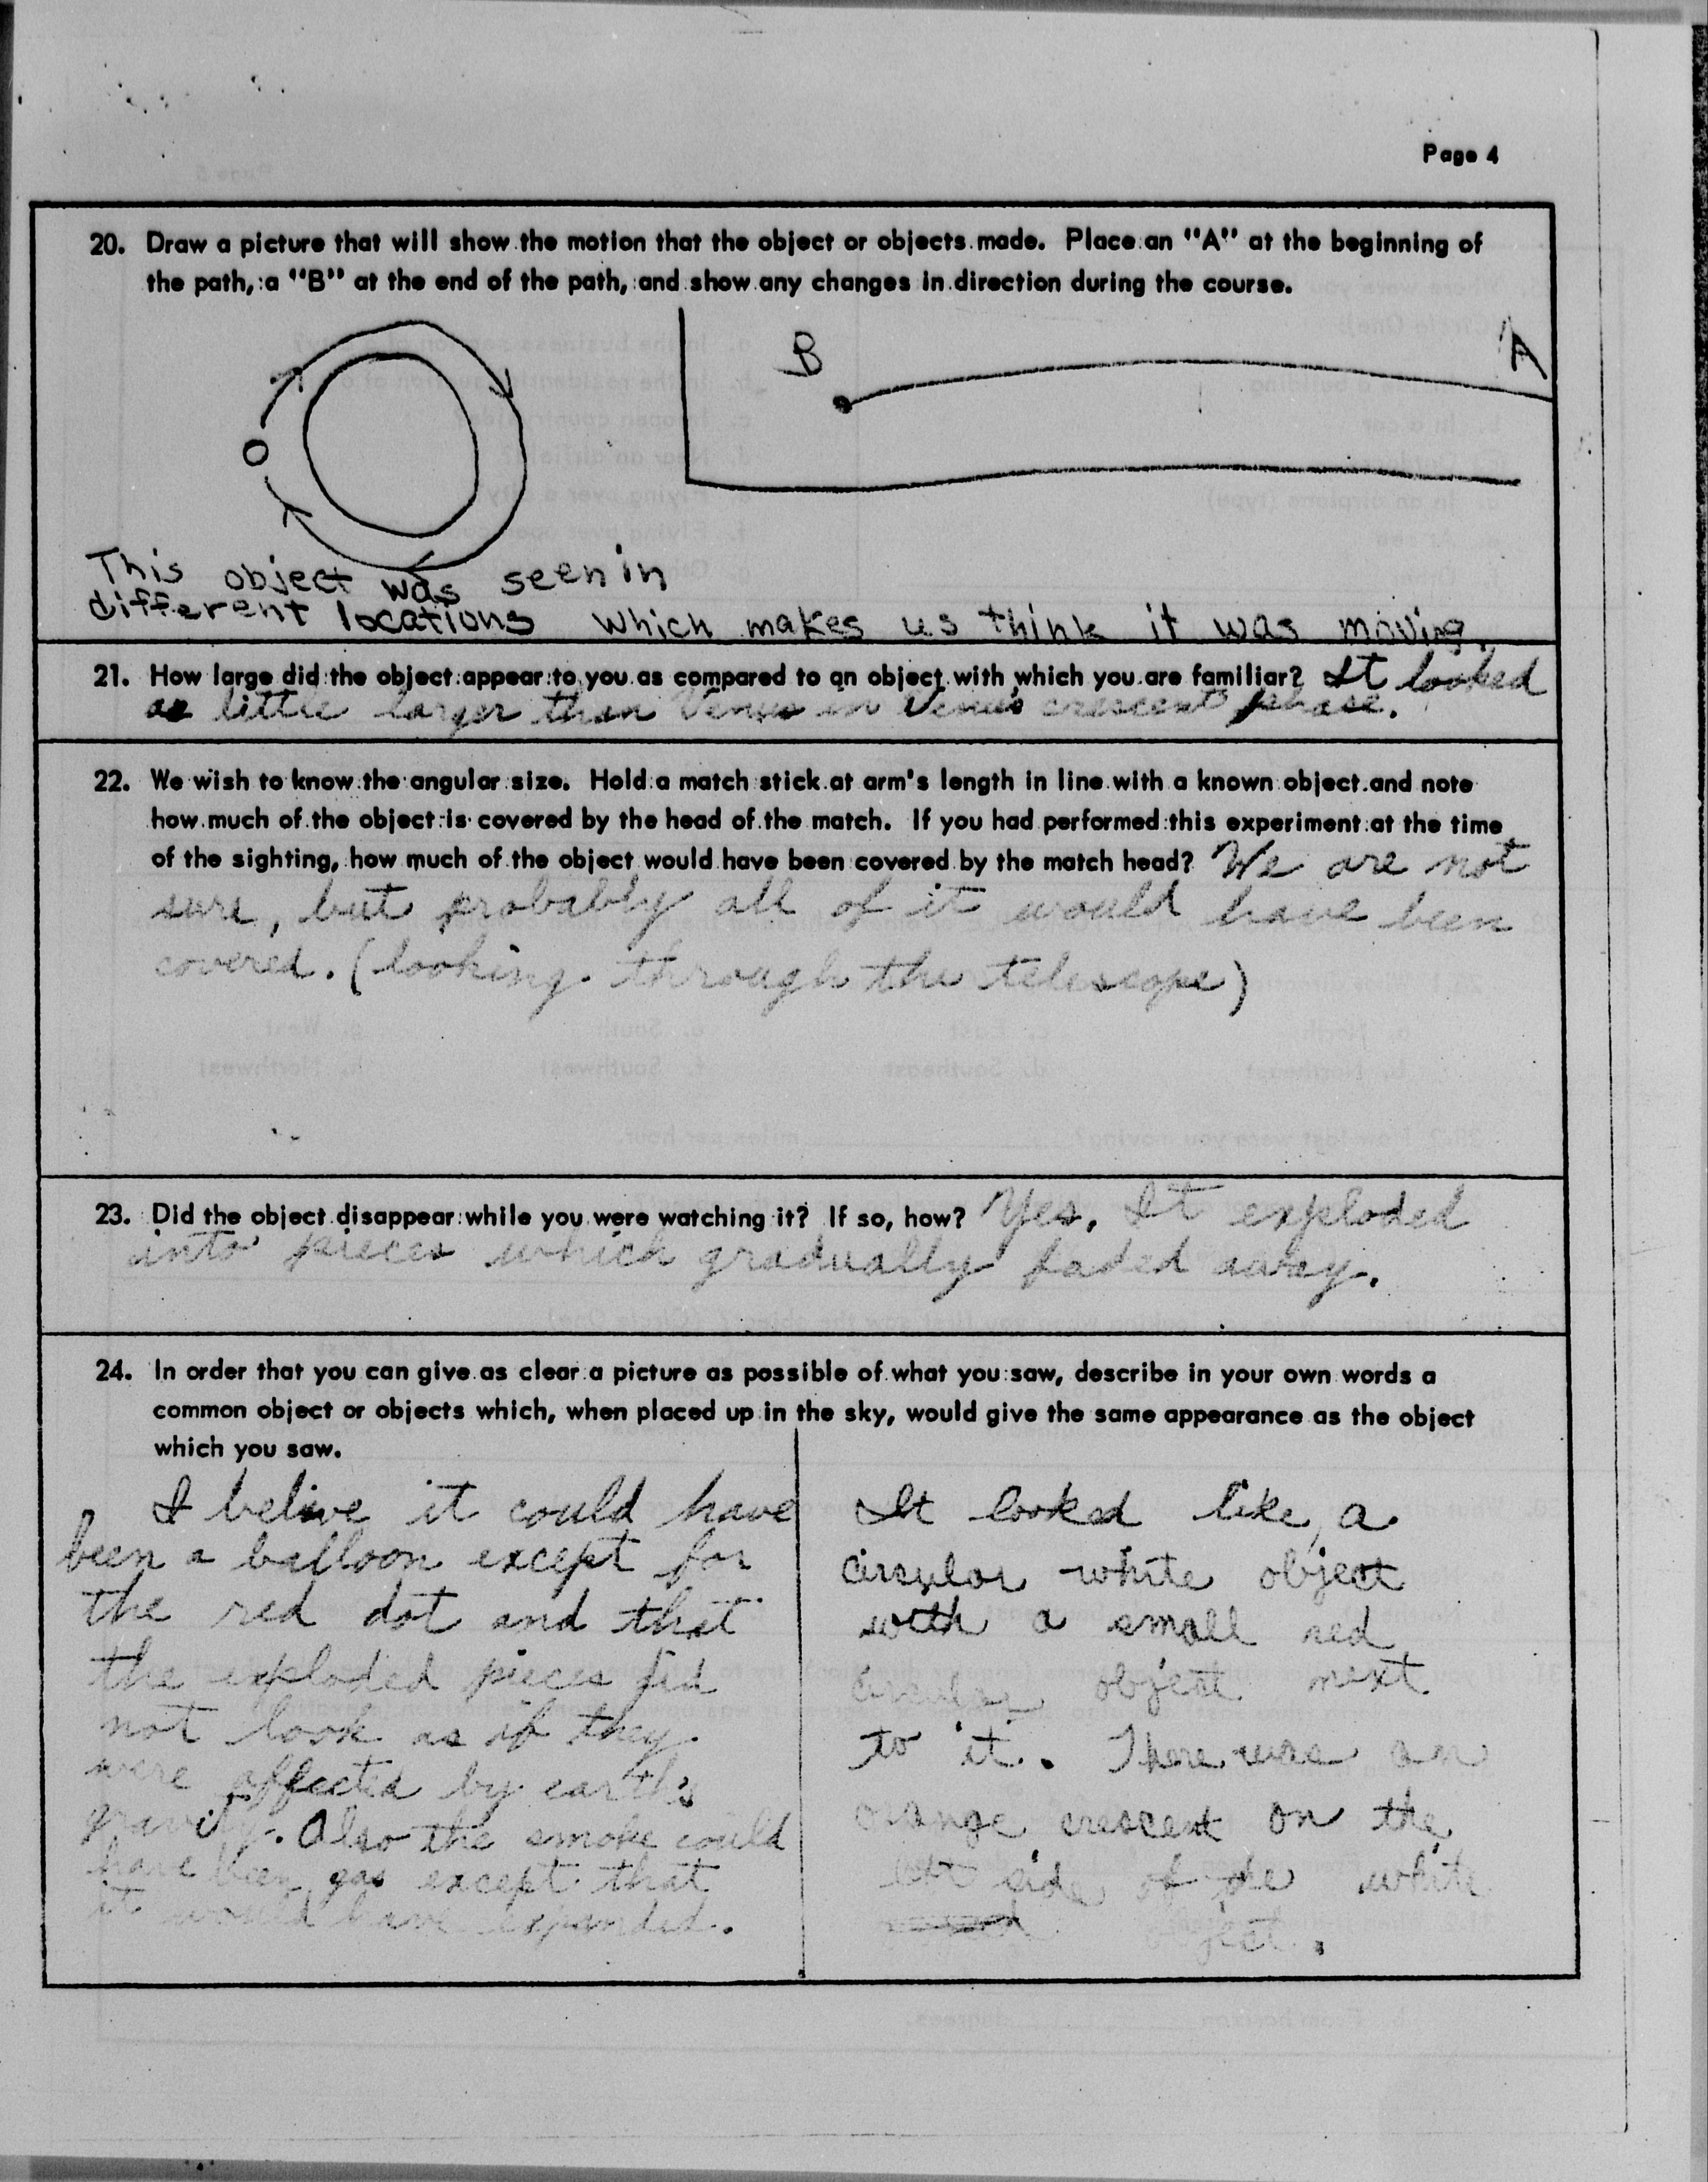 Page 4
20. Draw a picture that will show the motion that the object or objects made. Place an "A" at the beginning of
the path, a "B" at the end of the path, and show any changes in direction during the course.
B
A
This object was seen in
different locations which makes us think it was moving.
21. How large did the object appear to you as compared to an object with which you are familiar? It looked
a little larger than Venus in Venus crescent phase.
22. We wish to know the angular size. Hold a match stick at arm's length in line with a known object and note
how much of the object is covered by the head of the match. If you had performed this experiment at the time
of the sighting, how much of the object would have been covered by the match head? We are not
sure, but probably all of it would have been
covered. (looking through the telescope)
23. Did the object disappear while you were watching it? If so, how? Yes, It exploded
into pieces which gradually faded away.
24. In order that you can give as clear a picture as possible of what you saw, describe in your own words a
common object or objects which, when placed up in the sky, would give the same appearance as the object
which you saw.
I belive it could have
been a balloon except for
the red dot and that
the exploded pieces did
not look as if they
were affected by earth's
gravity. Also the smoke could
have been gas except that
it would have expanded.
It looked like a
circular white object
with a small red
circular object next
to it. There was an
orange crescent on the
left side of the white
object.